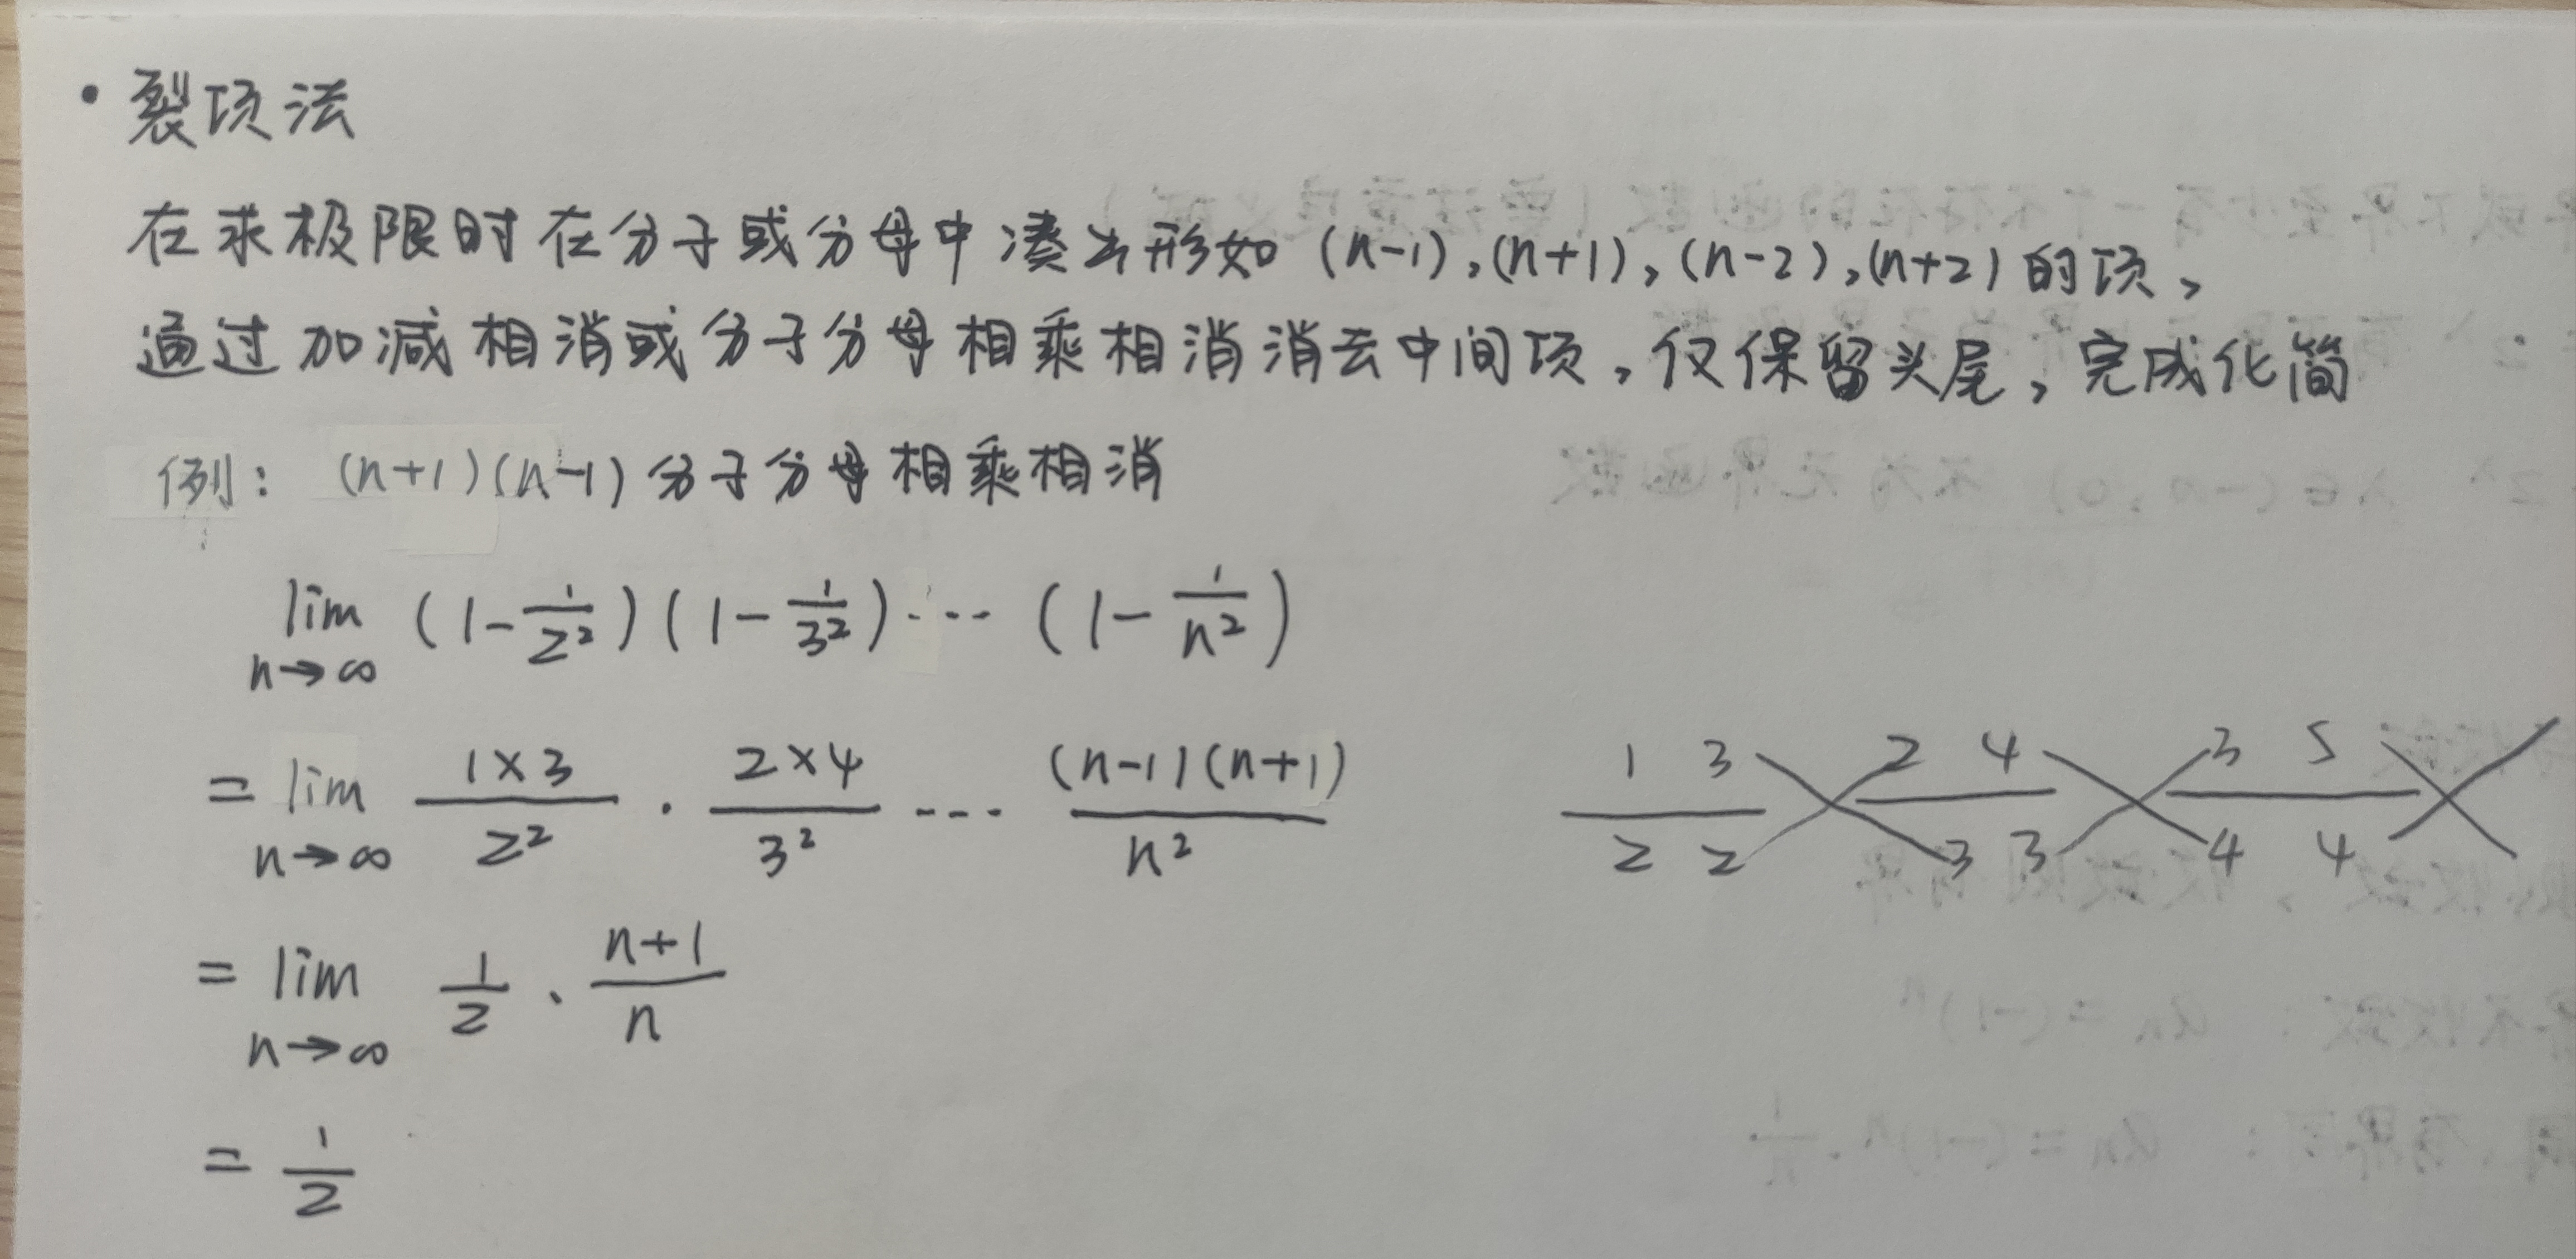 · 裂项法
在求极限时在分子或分母中凑出形如 (n-1),(n+1),(n-2),(n+2) 的项,
通过加减相消或分子分母相乘相消消去中间项,仅保留头尾,完成化简
例: (n+1)(n-1) 分子分母相乘相消
lim n→∞ (1-1/2²)(1-1/3²)···(1-1/n²)
= lim n→∞ (1×3)/2² · (2×4)/3² ··· ((n-1)(n+1))/n²
1 3 2 4 3 5
2 2 3 3 4 4
= lim n→∞ 1/2 · (n+1)/n
= 1/2